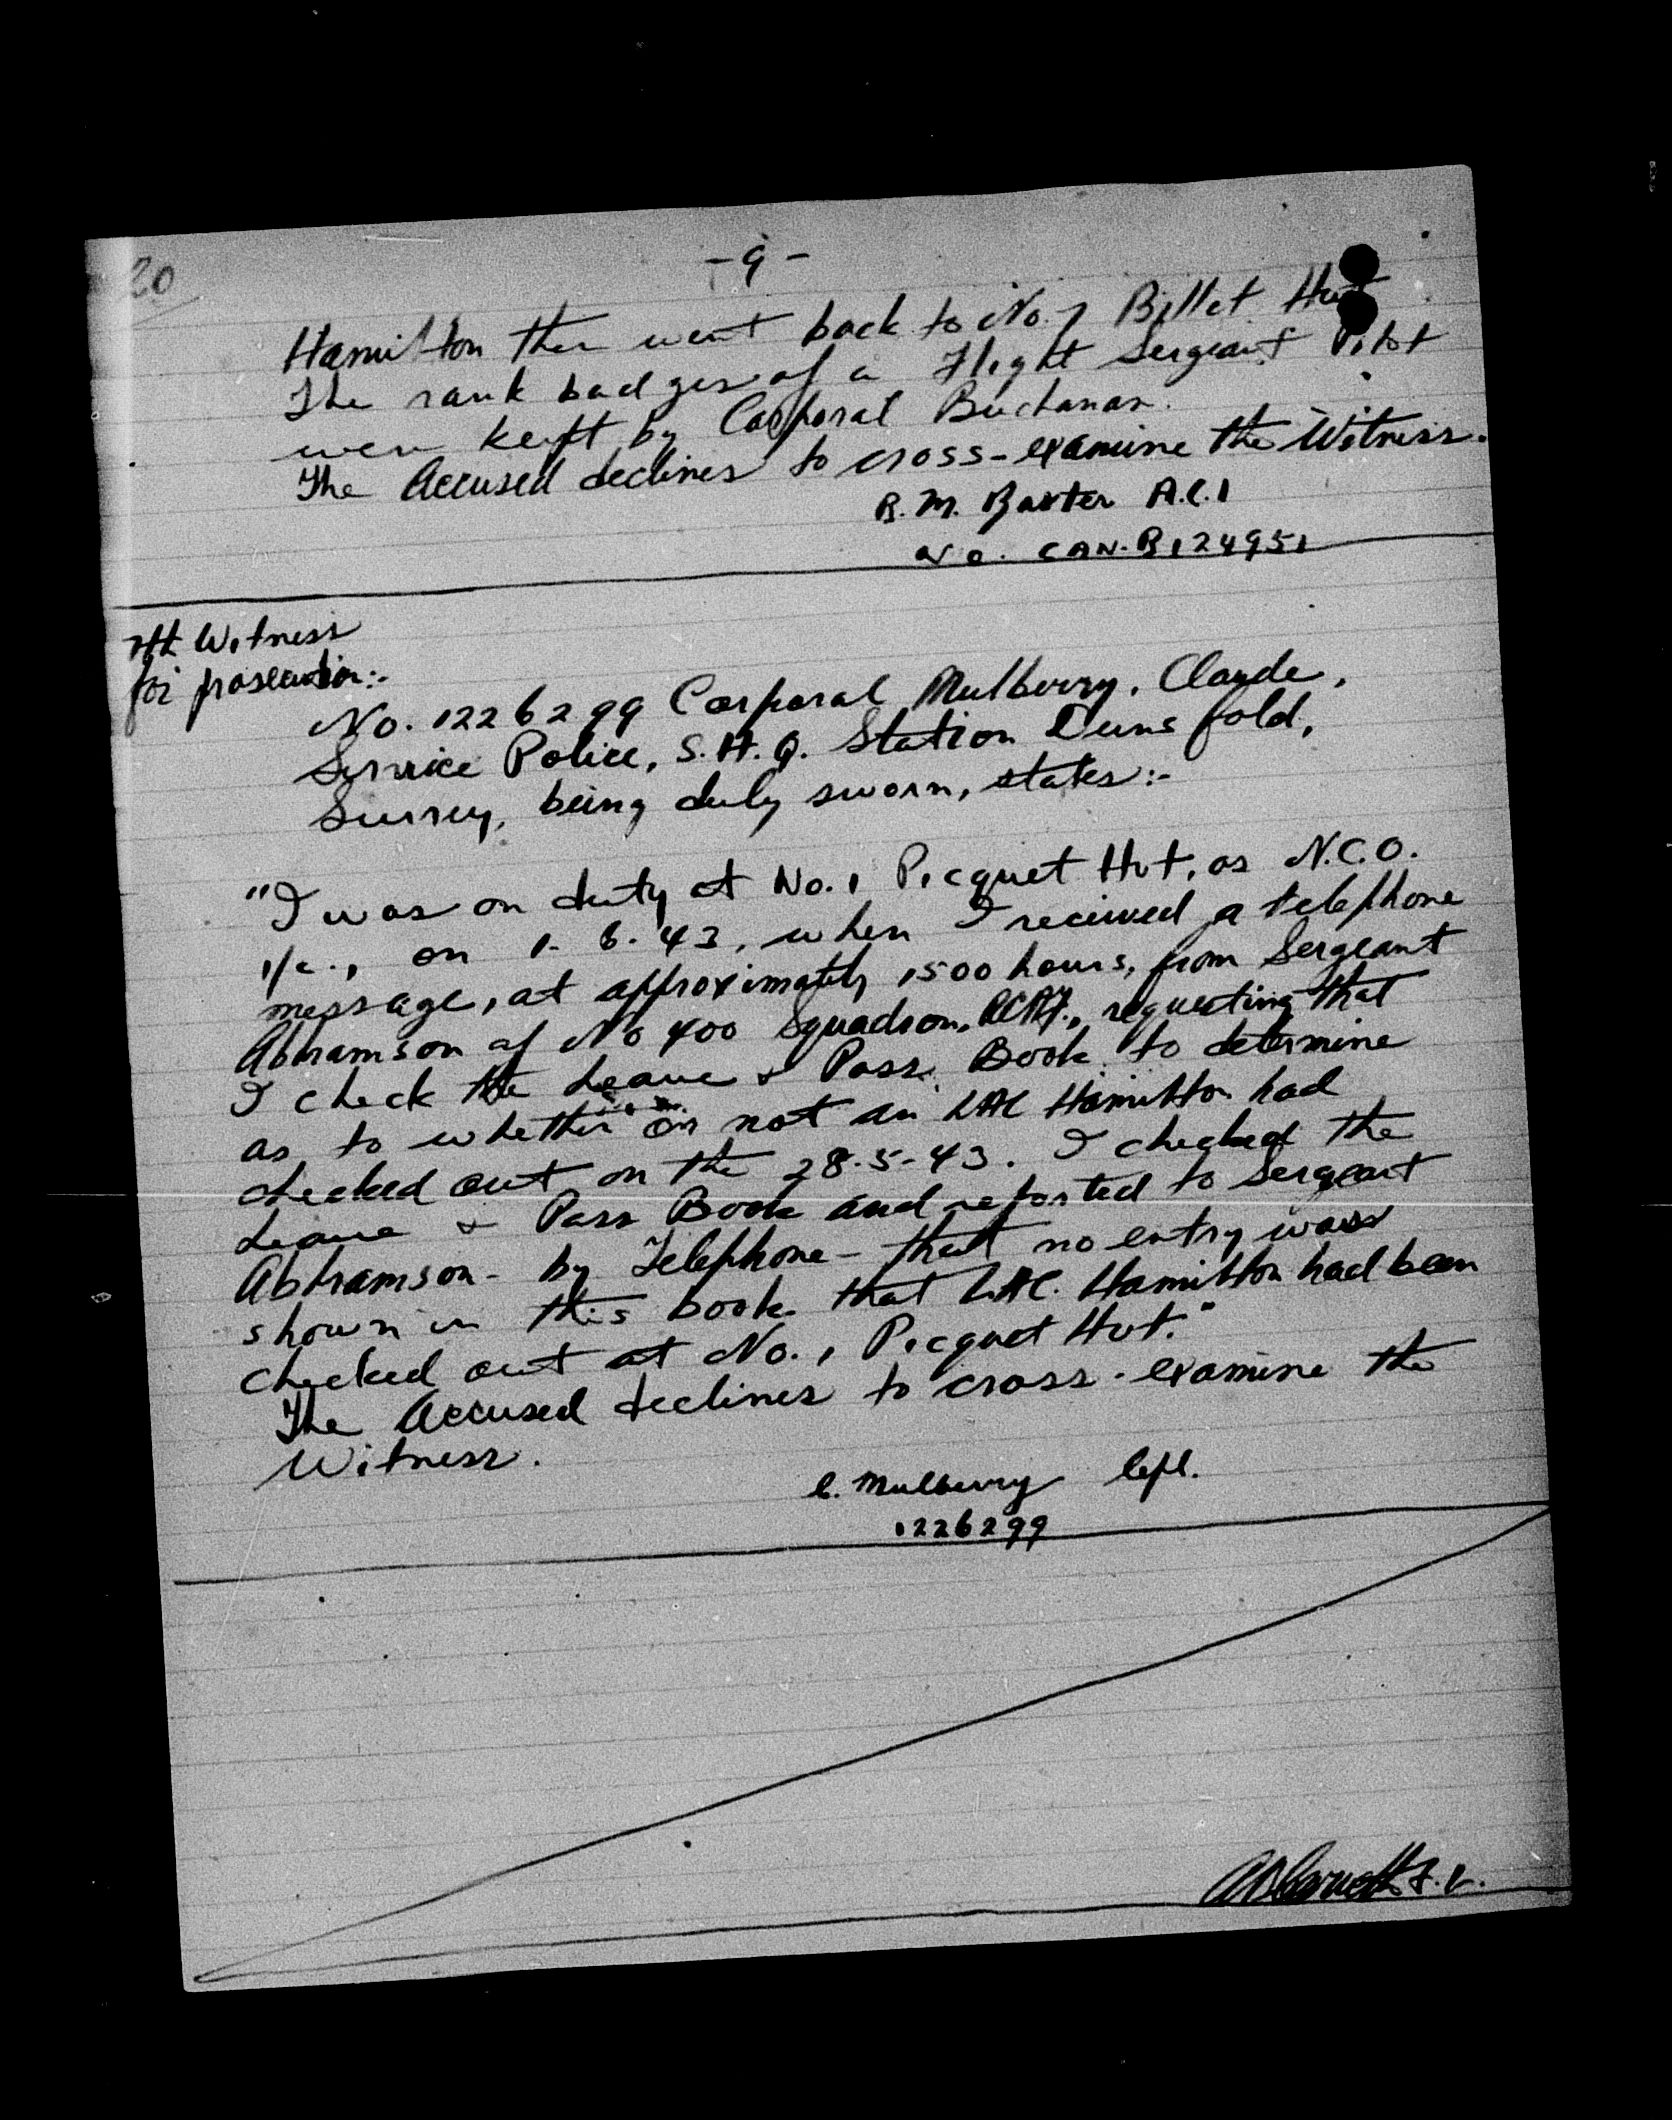 20
- 9 -
Hamilton then went back to No. 7 Billet Hut
The rank badges of a Flight Sergeant Pilot
were kept by Corporal Buchanan.
The Accused declines to cross-examine the Witness.
R. M. Baxter A.C.1
No. CAN. R124951
7th Witness
for prosecution:-
No. 1226299 Corporal Mulberry, Claude,
Service Police, S.H.Q. Station Dunsfold,
Surrey, being duly sworn, states:-
"I was on duty at No. 1 Picquet Hut, as N.C.O.
i/c., on 1-6-43, when I received a telephone
message, at approximately 1500 hours, from Sergeant
Abhramson of No 400 Squadron, RCAF., requesting that
I check the Leave & Pass Book to determine
as to whether or not an LAC Hamilton had
checked out on the 28-5-43. I checked the
Leave & Pass Book and reported to Sergeant
Abhramson - by Telephone - that no entry was
shown in this book that LAC. Hamilton had been
checked out at No. 1 Picquet Hut."
The Accused declines to cross-examine the
Witness.
C. Mulberry Cpl.
1226299
F.L.